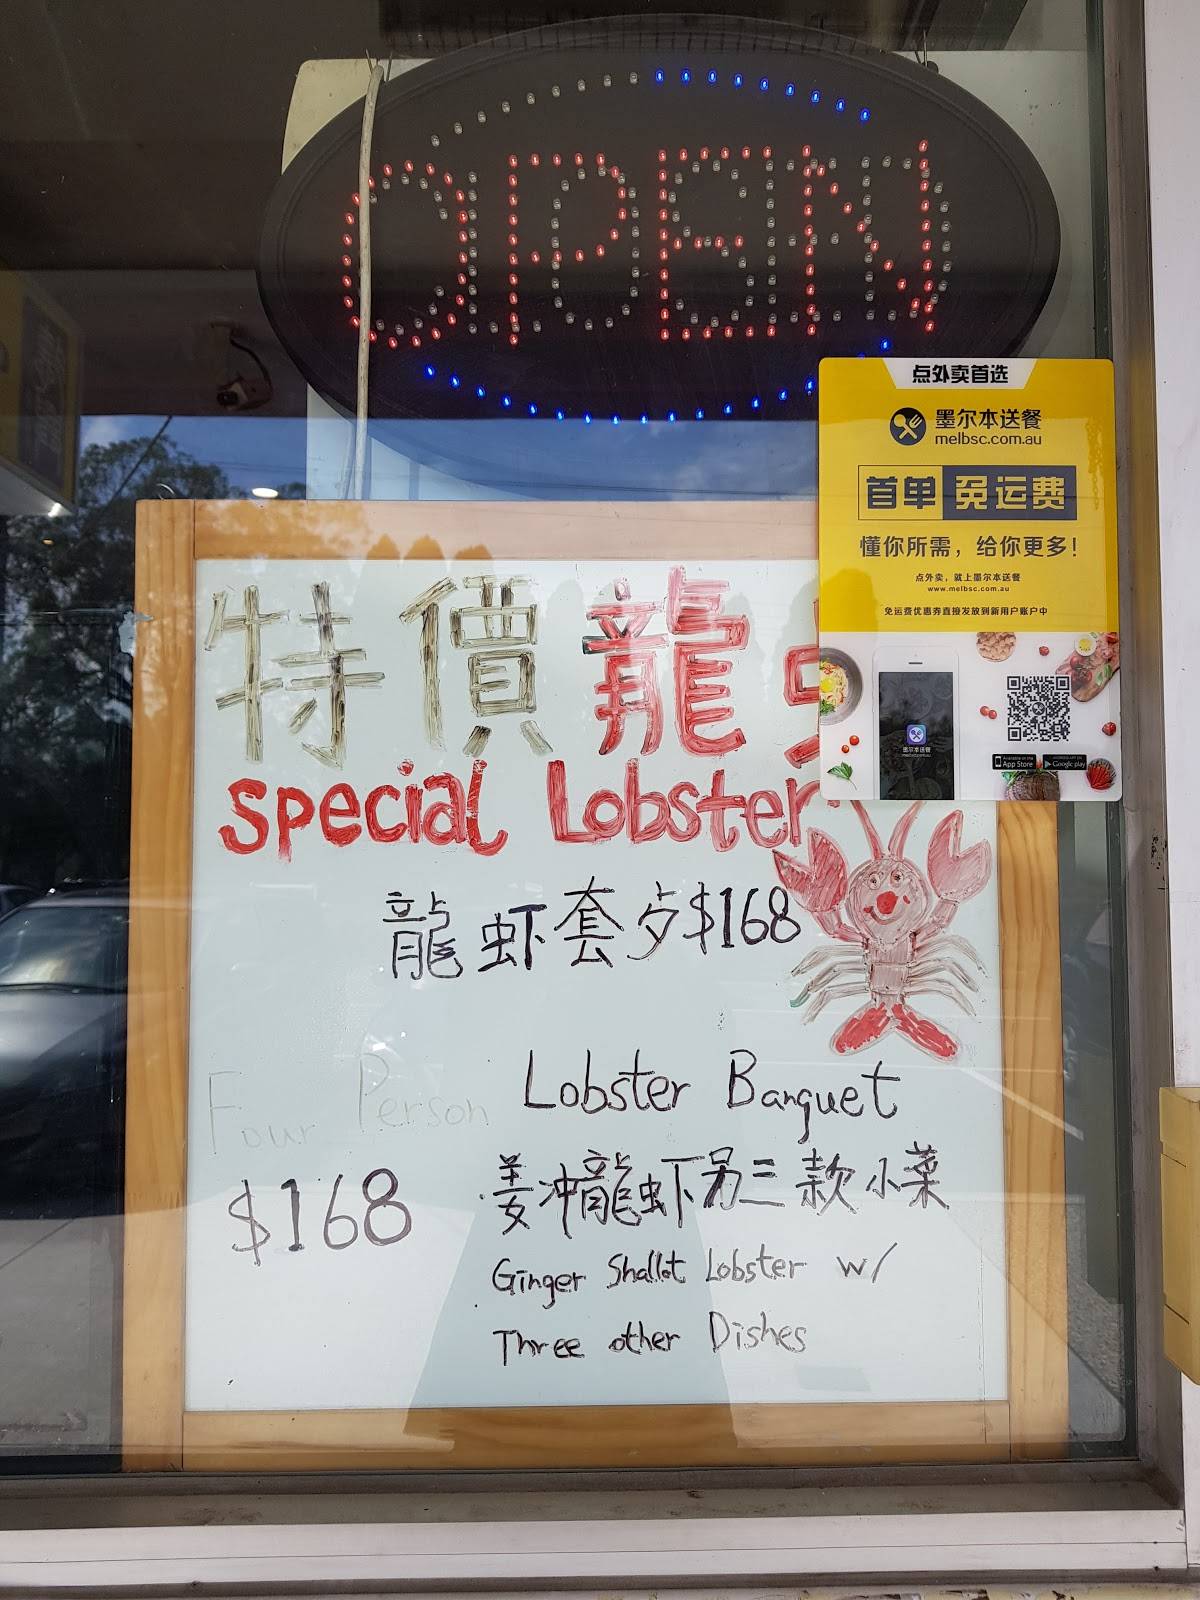 OPEN
点外卖首选
墨尔本送餐
melbsc.com.au
首单 免运费
懂你所需，给你更多！
点外卖，就上墨尔本送餐
www.melbsc.com.au
免运费优惠券直接发放到新用户账户中
墨尔本送餐
App Store
Google play
特價龍
Special Lobster
龍虾套歺$168
Four Person Lobster Banquet
$168
姜冲龍虾另三款小菜
Ginger Shallot Lobster w/
Three other Dishes